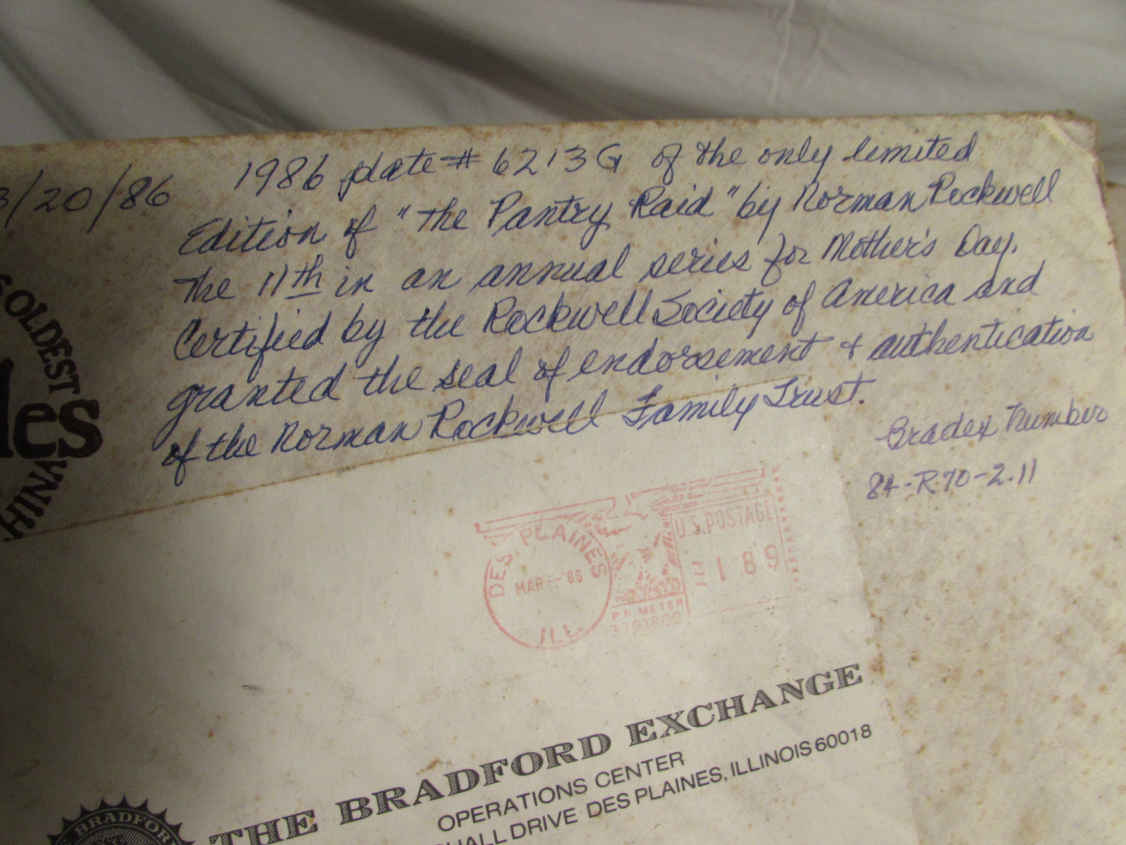 3/20/86 1986 plate # 6213G of the only limited
Edition of "The Pantry Raid" by Norman Rockwell
The 11th in an annual series for Mother's Day.
Certified by the Rockwell Society of America and
granted the seal of endorsement + authentication
of the Norman Rockwell Family Trust.
Bradex Number
84-R70-2.11
OLDEST
les
HINA
DES PLAINES
MAR 86
ILL
U.S. POSTAGE
189
P.B. METER
THE BRADFORD EXCHANGE
OPERATIONS CENTER
DRIVE DES PLAINES, ILLINOIS 60018
BRADFOR